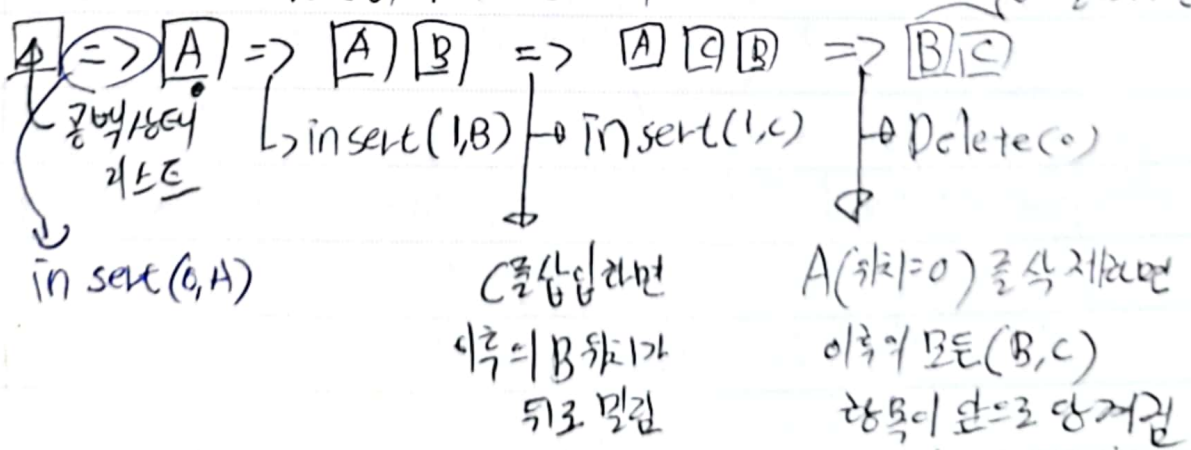 => A => A B => A C B => B C
공백상태
리스트
insert(0,A)
insert(1,B)
insert(1,C)
Delete(0)
C를 삽입하면
이후의 B 위치가
뒤로 밀림
A(위치=0)를 삭제하면
이후의 모든(B,C)
항목이 앞으로 당겨짐